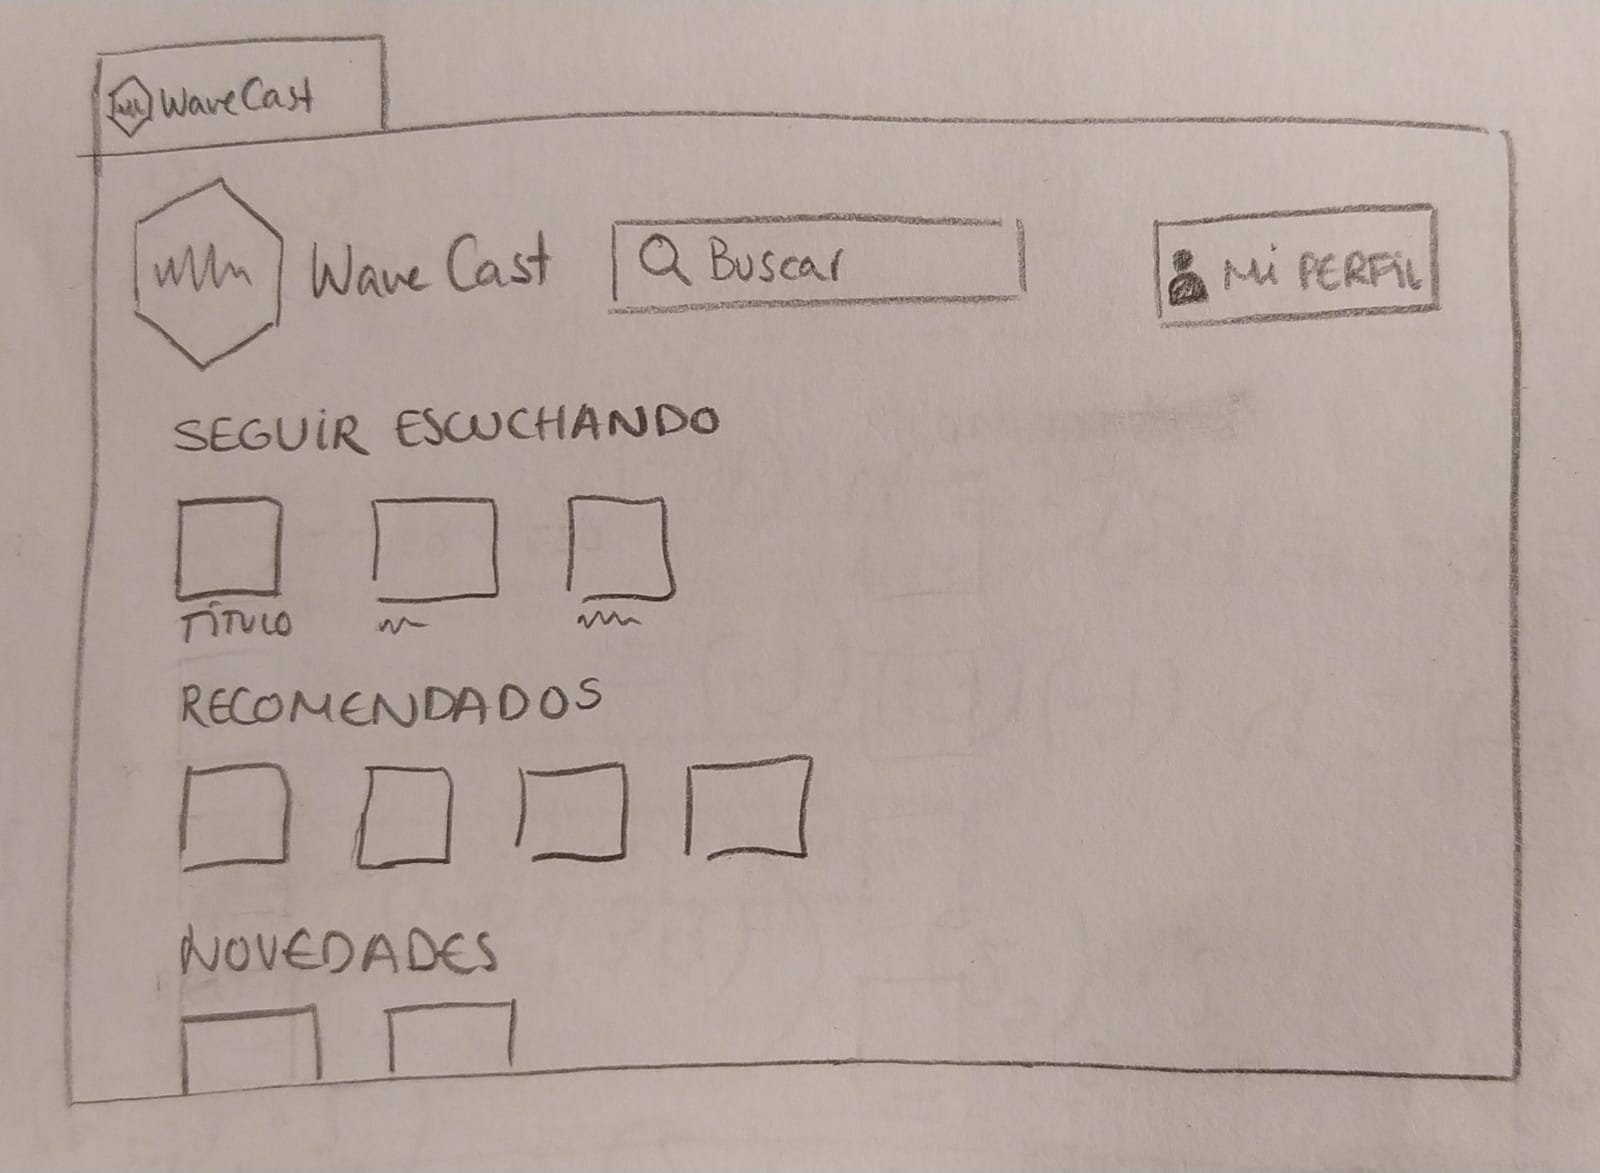 WaveCast
Wave Cast
Buscar
Mi PERFiL
SEGUiR ESCUCHANDO
TÍTULO
RECOMENDADOS
NOVEDADES